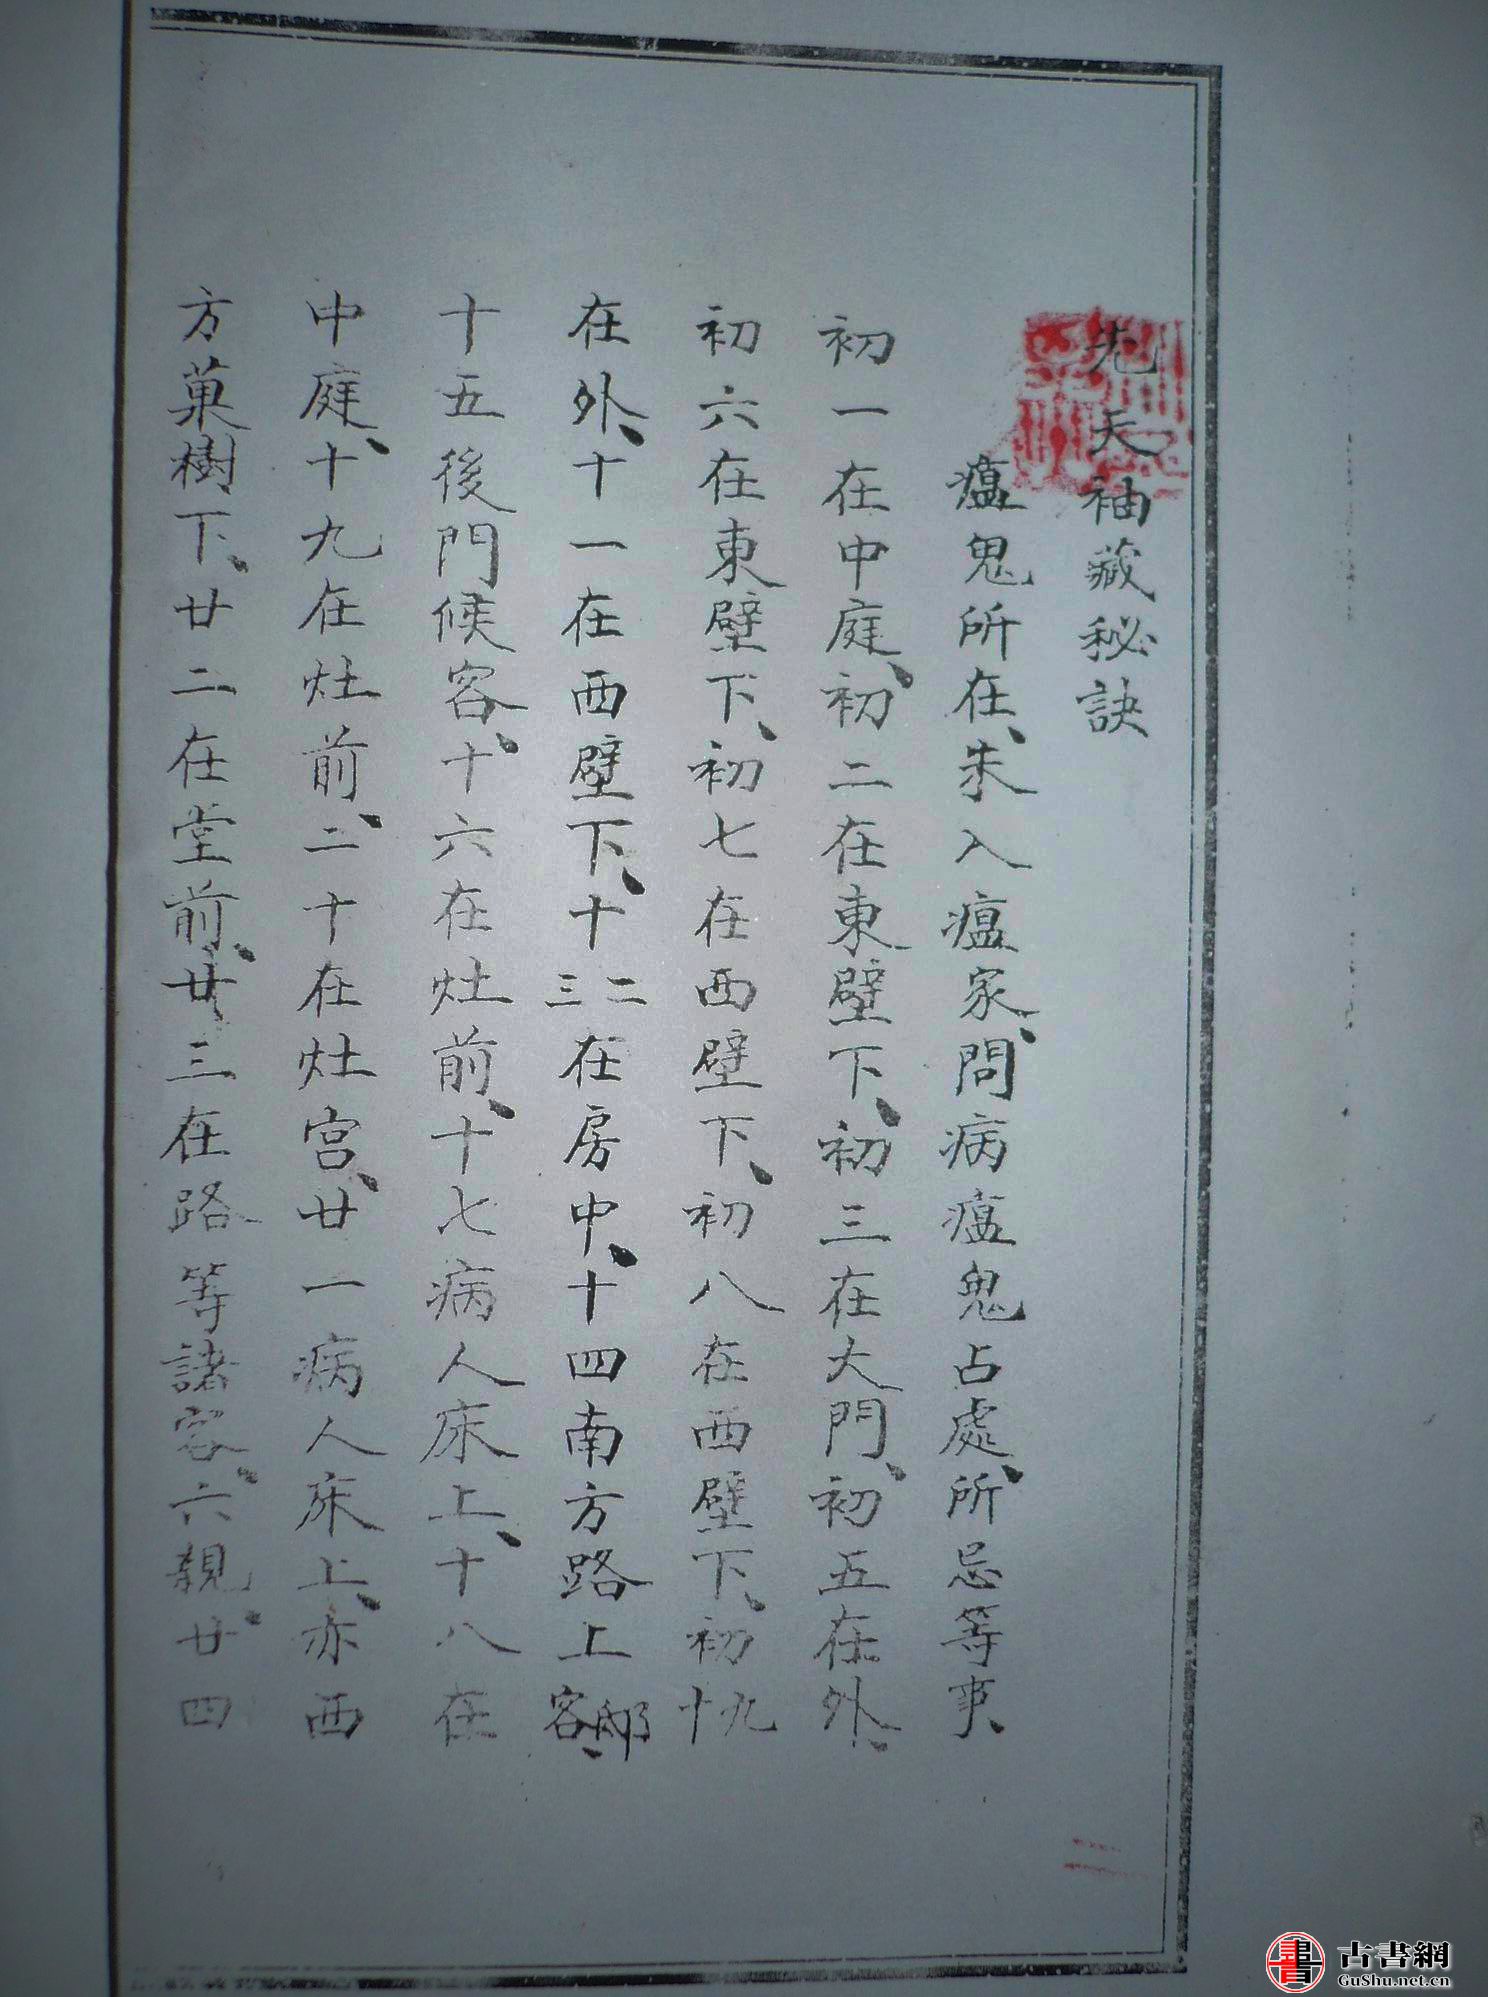 先天袖藏秘訣
瘟鬼所在、未入瘟家、問病瘟鬼占處、所忌等事、
初一在中庭、初二在東壁下、初三在大門、初五在外、
初六在東壁下、初七在西壁下、初八在西壁下、初九十
在外、十一在西壁下、十二三在房中、十四南方路上邸客、
十五後門候客、十六在灶前、十七病人床上、十八在
中庭、十九在灶前、二十在灶宫、廿一病人床上、亦西
方菓樹下、廿二在堂前、廿三在路等諸客、六親、廿四
古書網
GuShu.net.cn